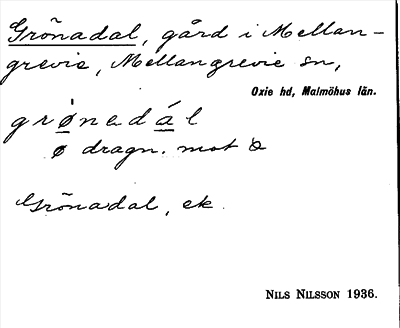 Grönadal, gård i Mellan-
grevie, Mellangrevie sn,
Oxie hd, Malmöhus län.
grønadál
ø dragn. mot
Grönadal, ek.
NILS NILSSON 1936.